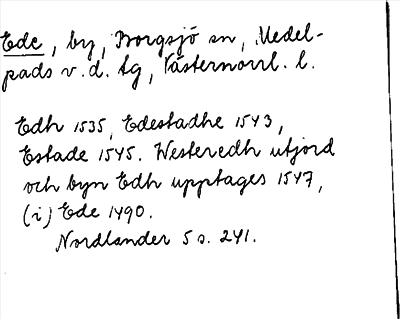 Ede, by, Borgsjö sn, Medel-
pads v. d. tg, Västernorrl. l.
Edh 1535, Edestadhe 1543,
Estade 1545. Westeredh utjord
och byn Edh upptages 1547,
(i) Ede 1490.
Nordlander 5 s. 241.